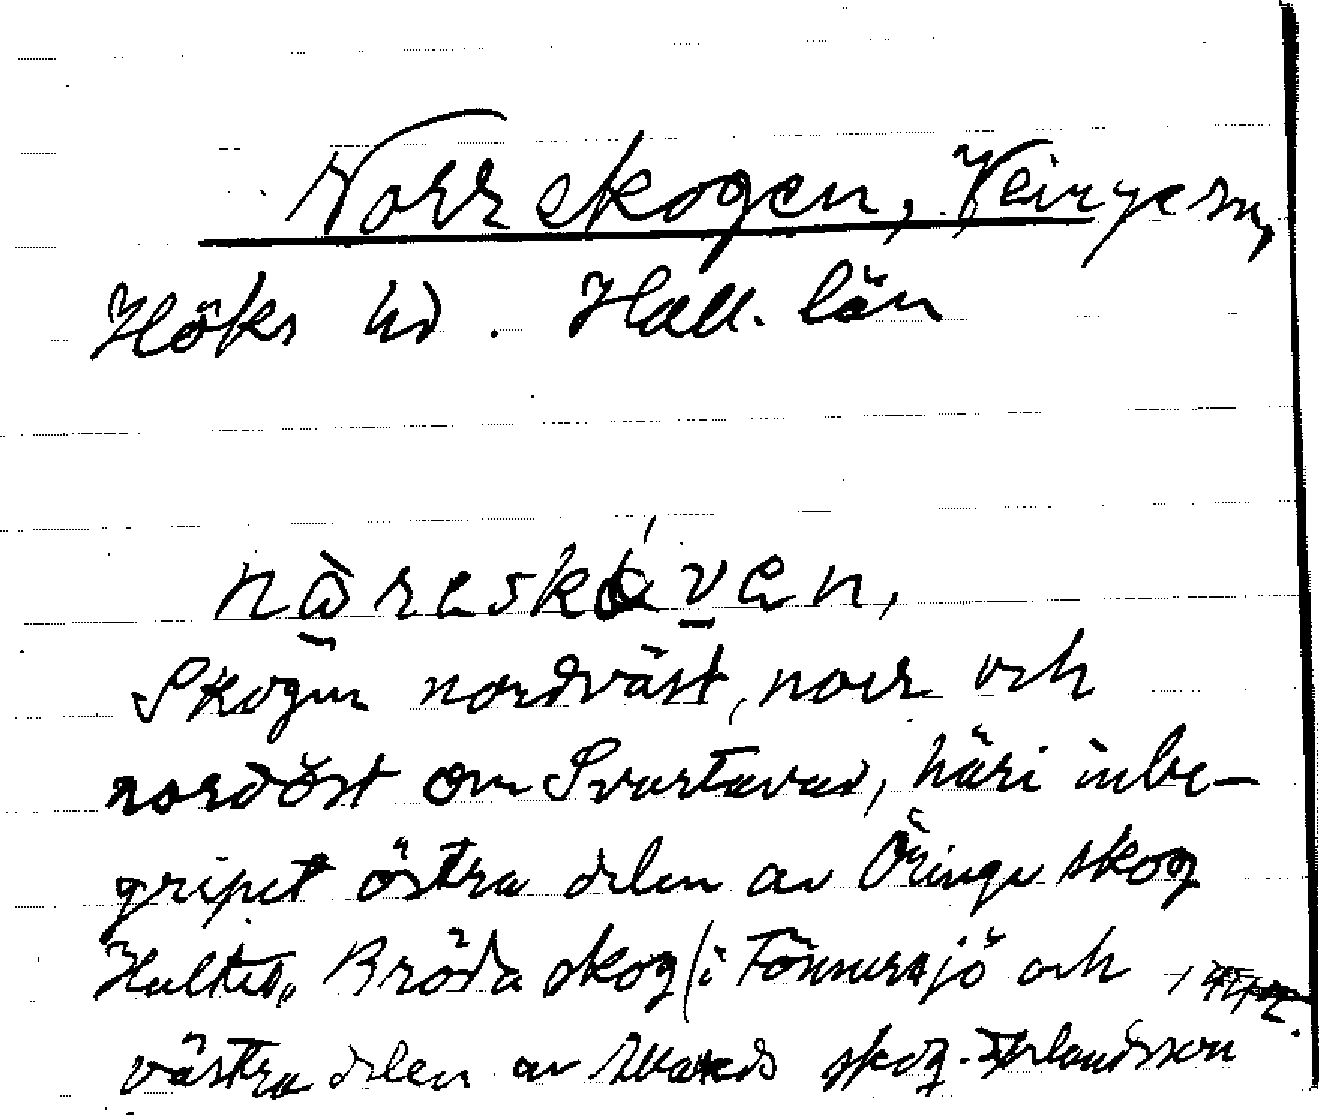 Norrskogen, Veinge sn,
Höks hd. Hall. län
nåreskóven,
Skogen nordväst, norr och
nordöst om Svartavad, häri inbe-
gripet östra delen av Öringe skog
Hultet, Bröda skog (i Tönnersjö och
västra delen av skog. Erlandsson